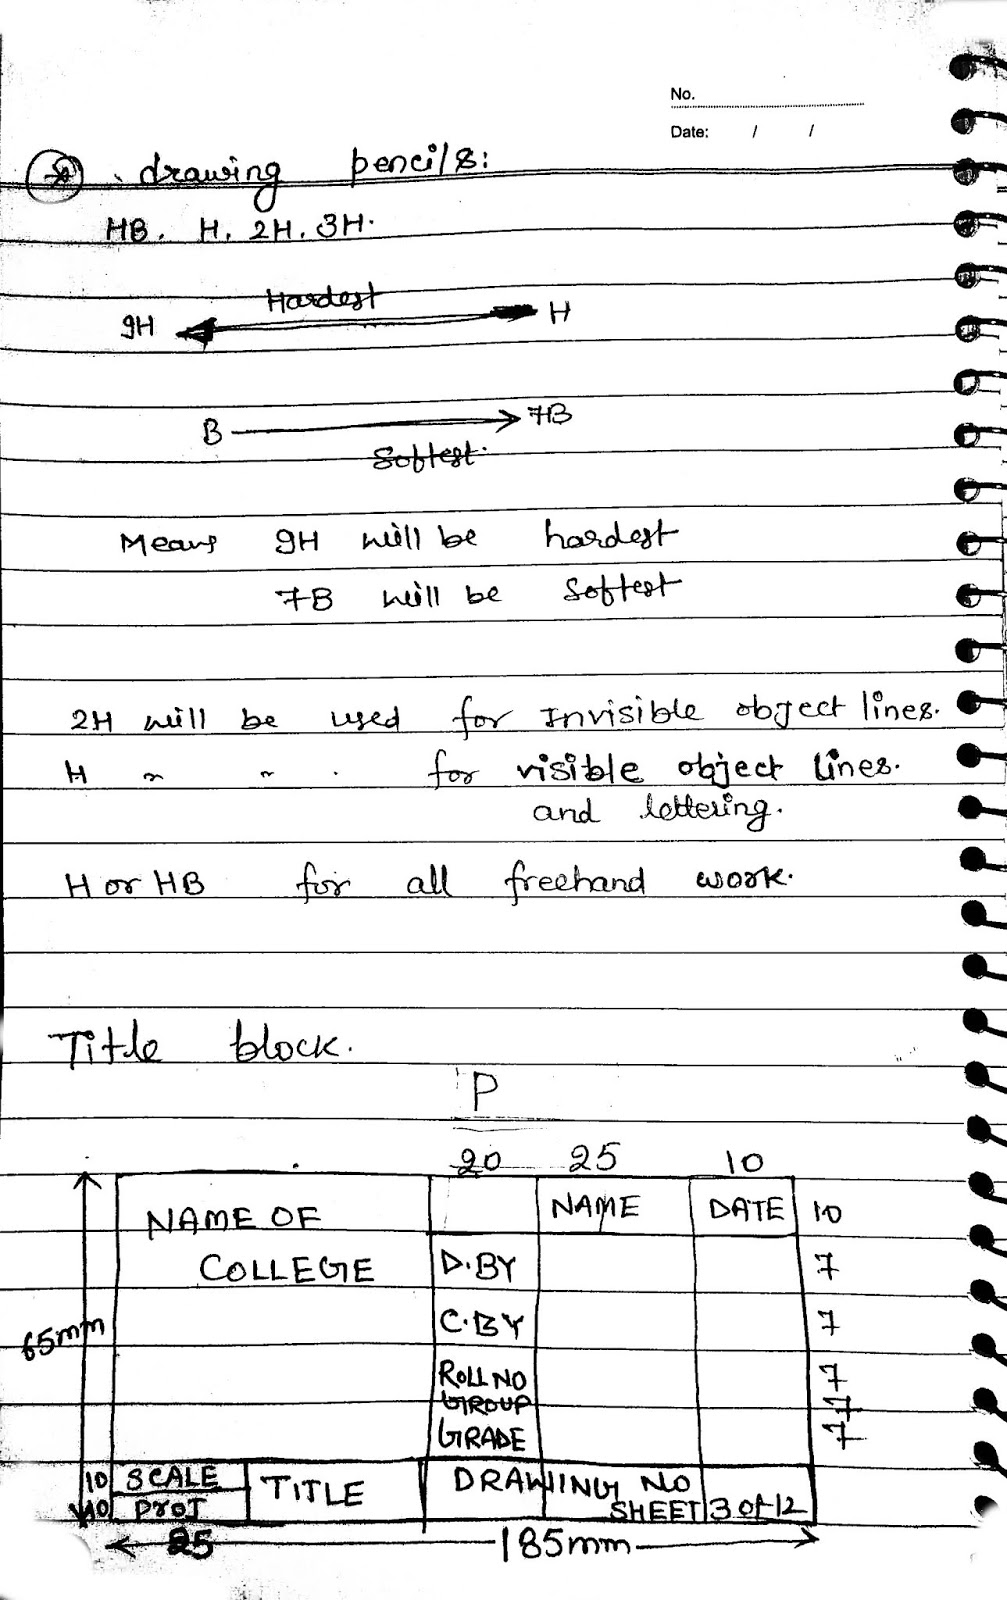 No.
Date: / /
drawing pencils:
HB. H. 2H. 3H.
Hardest
9H H
B 7B
Softest.
Means 9H will be hardest
7B will be Softest
2H will be used for Invisible object lines.
H " " . for visible object lines.
and lettering.
H or HB for all freehand work.
Title block.
P
20 25 10
NAME OF COLLEGE NAME DATE 10
D.BY 7
C.BY 7
65mm
ROLL NO 7
GROUP 7
GRADE 7
10 SCALE TITLE DRAWING NO
10 PROJ SHEET 3 of 12
25 185mm